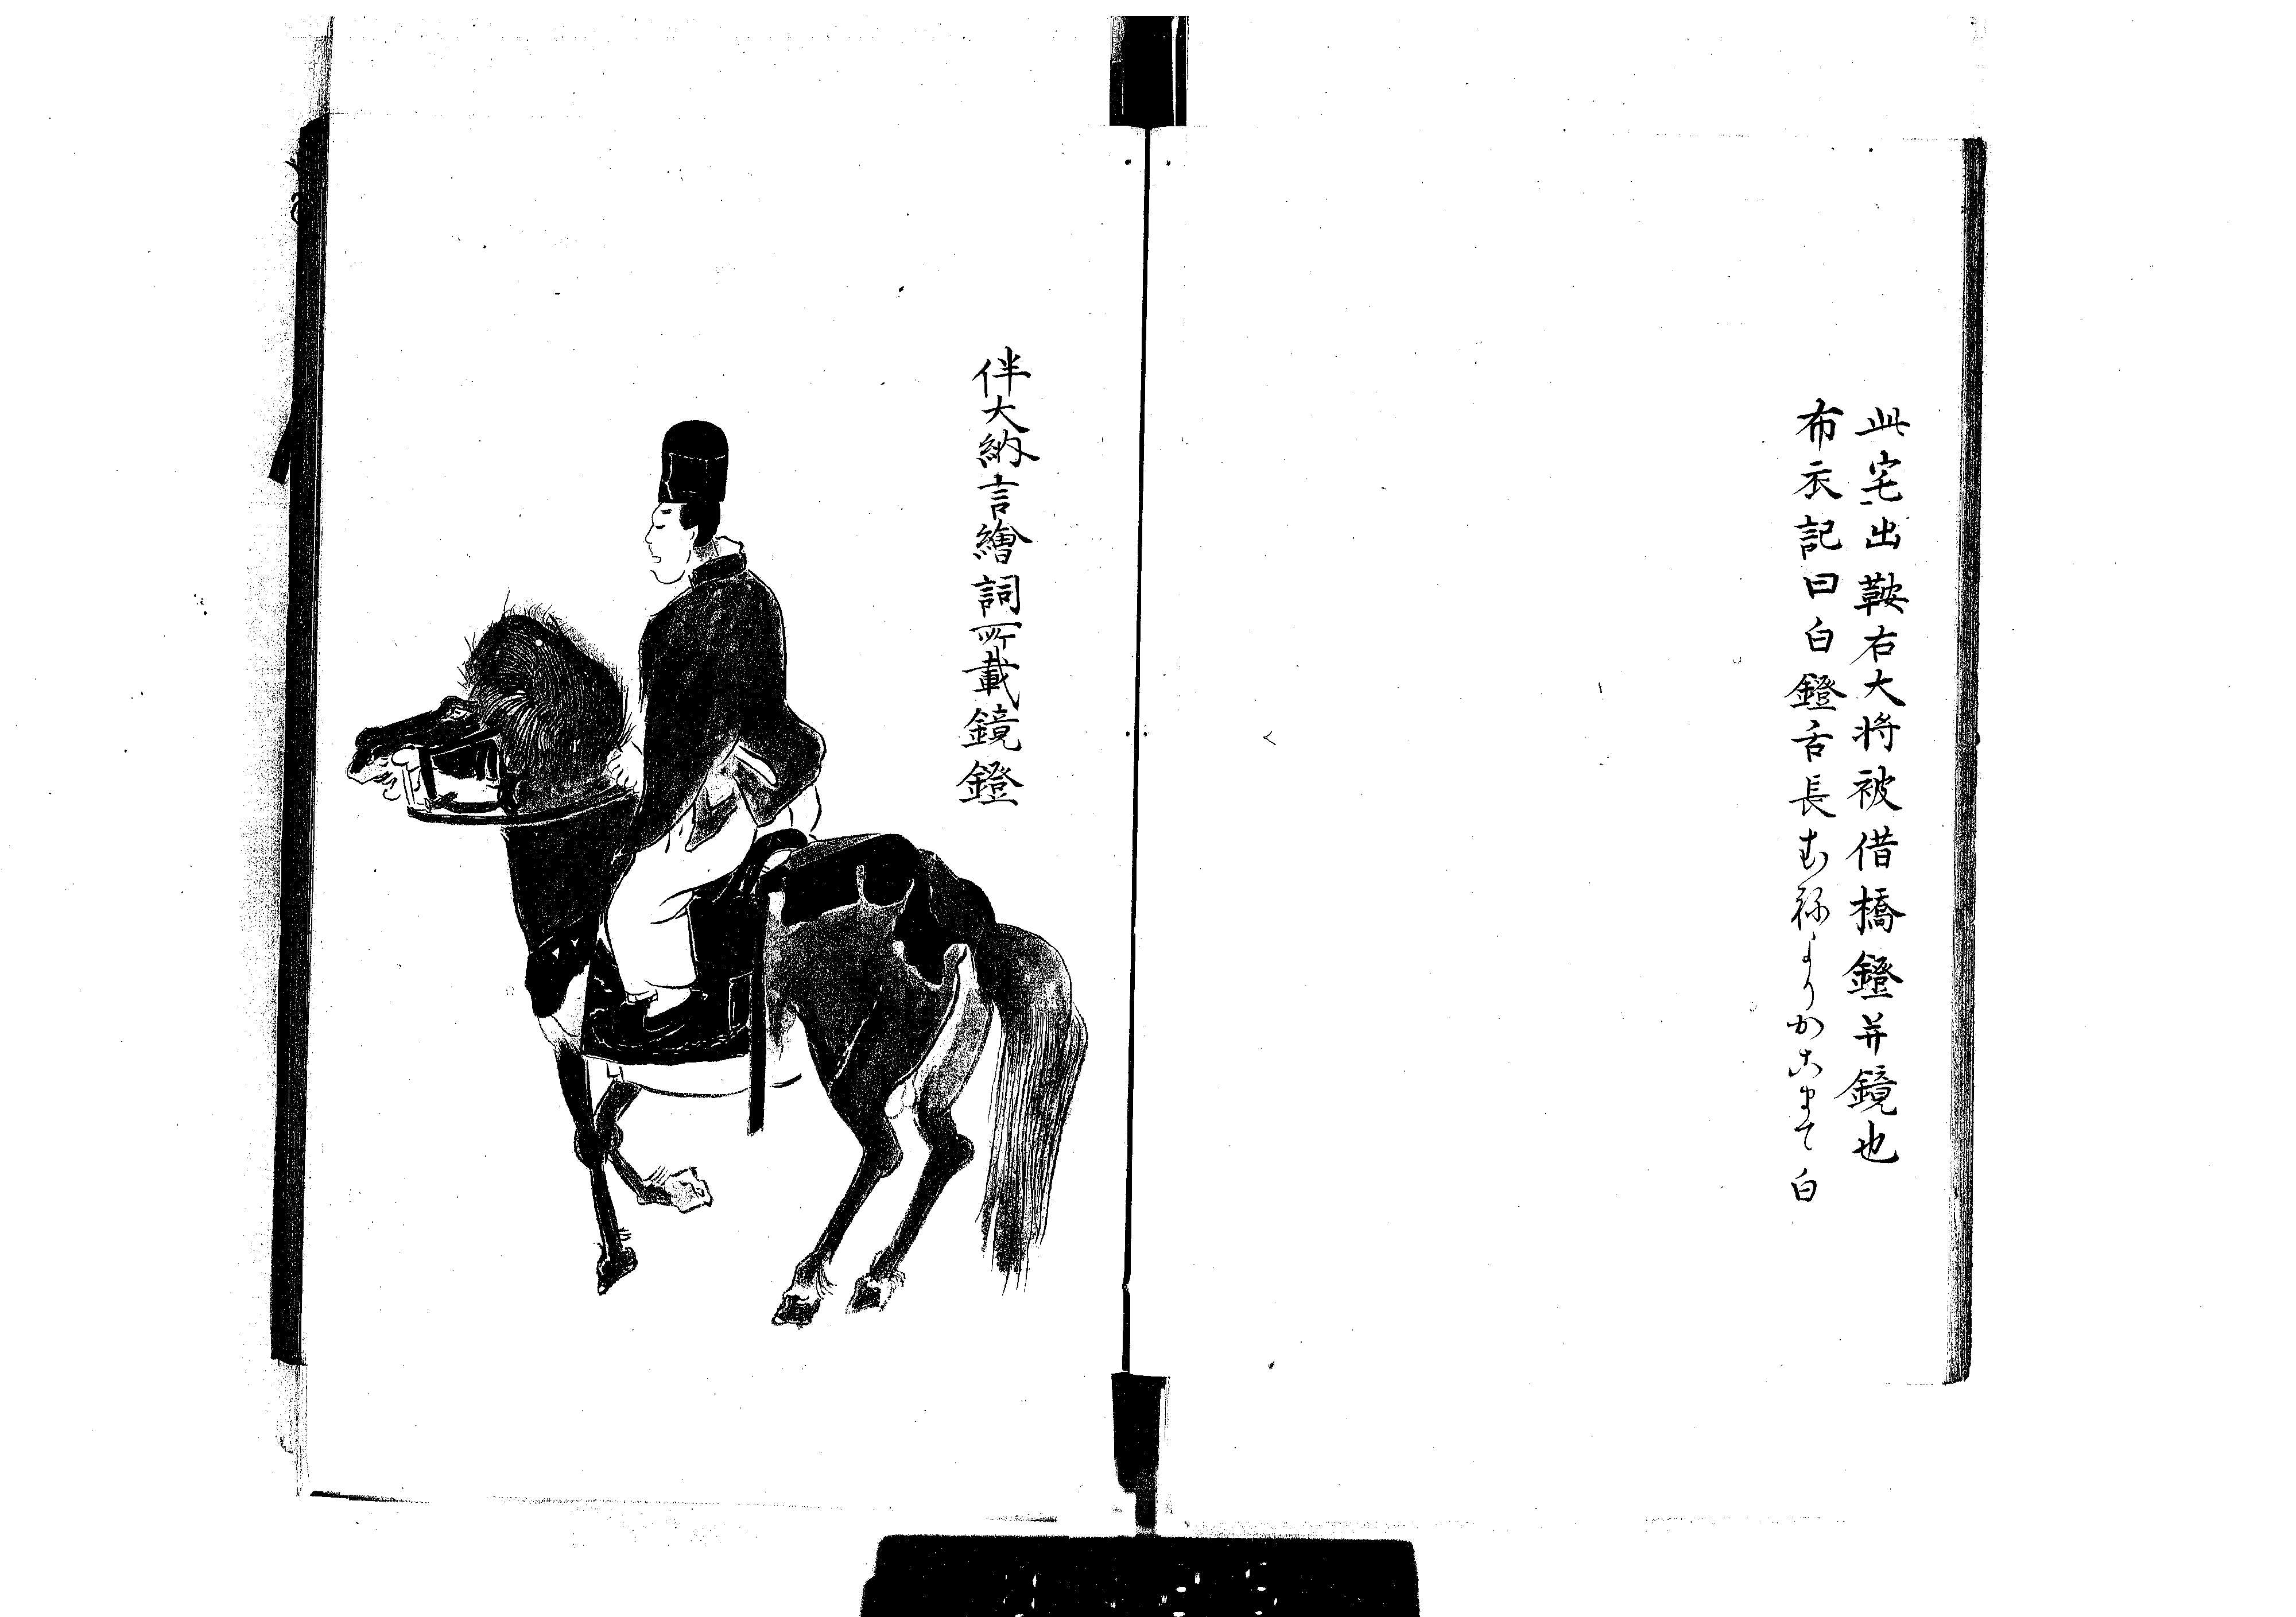 此宅出鞍右大将被借橋鐙并鏡也
布衣記曰白鐙舌長むねよりかこまて白
伴大納言繪詞所載鏡鐙